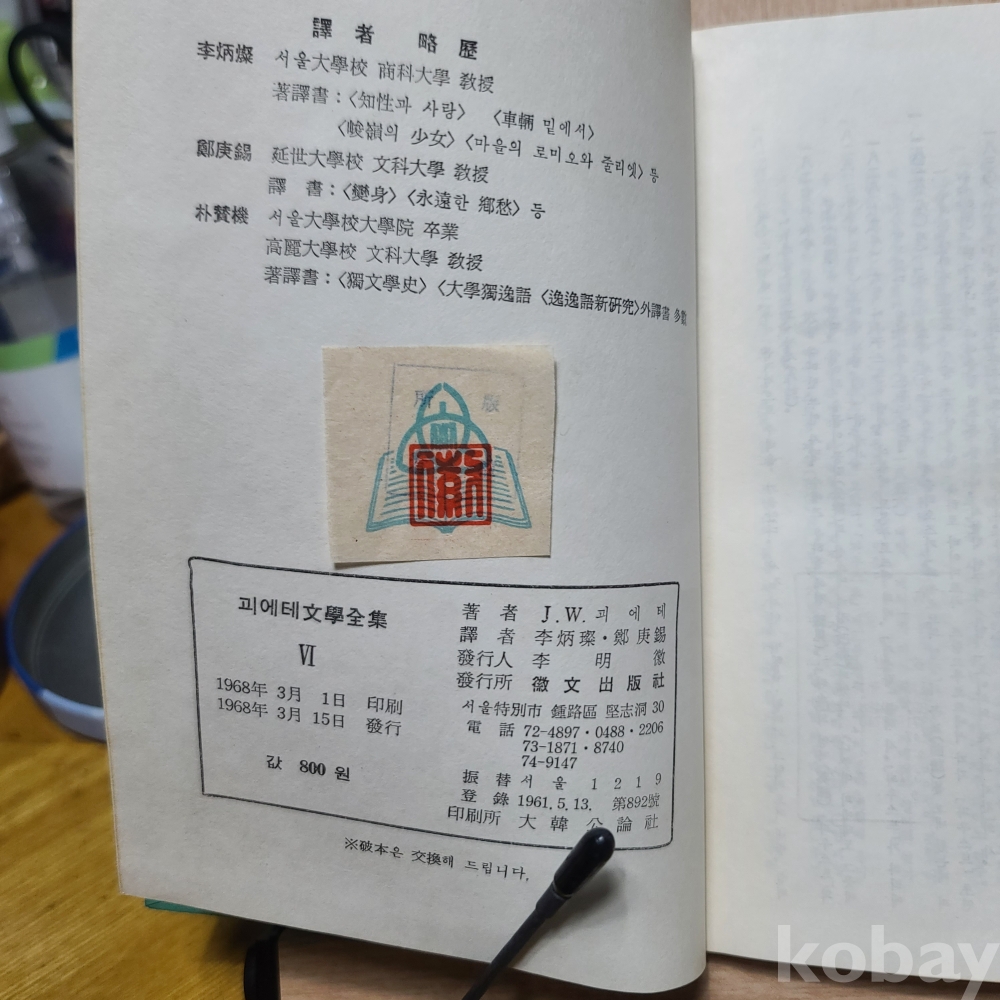 譯者 略歷
李炳燦 서울大學校 商科大學 敎授
著譯書:〈知性과 사랑〉 〈車輛 밑에서〉
〈峻嶺의 少女〉〈마을의 로미오와 줄리엣〉등
鄭庚錫 延世大學校 文科大學 敎授
譯 書:〈變身〉〈永遠한 鄕愁〉등
朴贊機 서울大學校大學院 卒業
高麗大學校 文科大學 敎授
著譯書:〈獨文學史〉〈大學獨逸語 〈逸逸語新硏究〉外譯書 多數
所 版
徽
괴에테文學全集
Ⅵ
1968年 3月 1日 印刷
1968年 3月 15日 發行
값 800 원
著 者 J.W. 괴 에 테
譯 者 李炳璨・鄭庚錫
發行人 李 明 徽
發行所 徽文出版社
서울特別市 鍾路區 堅志洞 30
電 話 72-4897・0488・2206
73-1871・8740
74-9147
振替 서울 1219
登 錄 1961.5.13. 第892號
印刷所 大韓公論社
※破本은 交換해 드립니다.
kobay